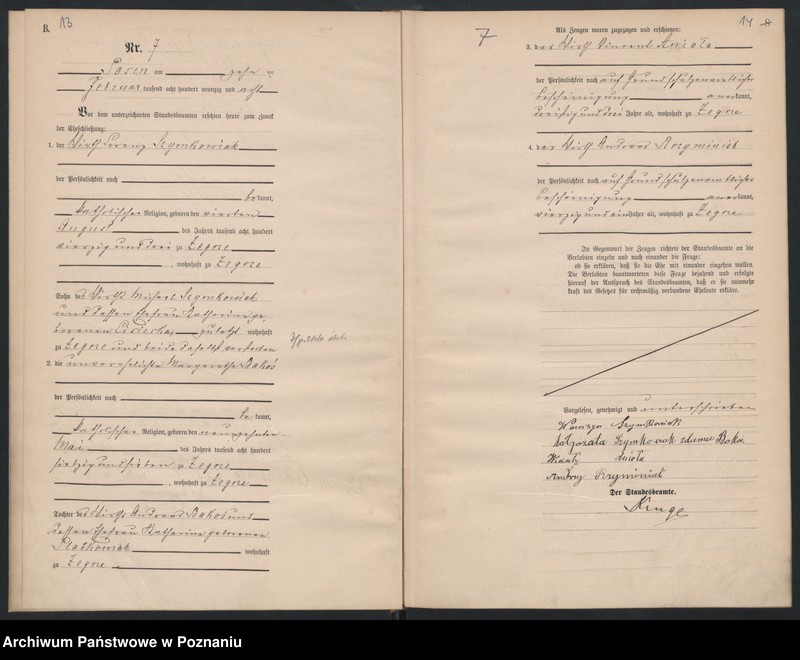 B. 13
Nr. 7
Posen am zehn
Februar tausend acht hundert neunzig und acht
Vor dem unterzeichneten Standesbeamten erschien heute zum Zweck
der Eheschließung:
1. der Wirth Lorenz Szymkowiak
der Persönlichkeit nach
be kannt,
katholischer Religion, geboren den vierten
August des Jahres tausend acht hundert
vierzig und drei zu Zegrze
, wohnhaft zu Zegrze
Sohn des Wirths Michael Szymkowiak
und dessen Ehefrau Katharina ge-
borenen zuletzt wohnhaft
zu Zegrze und beide daselbst verstorben
2. die unverehelichte Margaretha Bakoś
der Persönlichkeit nach
be kannt,
katholischer Religion, geboren den neunzehnten
Mai des Jahres tausend acht hundert
siebzig und sieben zu Zegrze
, wohnhaft zu Zegrze
Tochter des Wirths Andreas Bakoś und
dessen Ehefrau Katharina geborenen
Platkowiak wohnhaft
zu Zegrze
7
14
Als Zeugen waren zugezogen und erschienen:
3. der Wirth Vincent Anioła
der Persönlichkeit nach auf Grund schulzenamtlicher
Bescheinigung anerkannt,
dreißig und drei Jahre alt, wohnhaft zu Zegrze
4. der Wirth Andreas
der Persönlichkeit nach auf Grund schulzenamtlicher
Bescheinigung anerkannt,
vierzig und ein Jahre alt, wohnhaft zu Zegrze
In Gegenwart der Zeugen richtete der Standesbeamte an die
Verlobten einzeln und nach einander die Frage:
ob sie erklären, daß sie die Ehe mit einander eingehen wollen.
Die Verlobten beantworteten diese Frage bejahend und erfolgte
hierauf der Ausspruch des Standesbeamten, daß er sie nunmehr
kraft des Gesetzes für rechtmäßig verbundene Eheleute erkläre.
Vorgelesen, genehmigt und unterschrieben
Szymkowiak
Małgorzata Szymkowiak z domu Bakoś
Anioła
Andrzej
Der Standesbeamte.
Archiwum Państwowe w Poznaniu